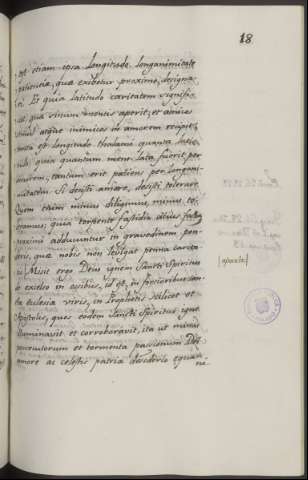 18
est etiam ipsa Longitudo, longanimitate
patientiae, quae exibetur proximo, designa-
ri. Et quia latitudo caritatem significat
qua sinum mentis aperit, et amicos
simul atque inimicos in amorem recipit,
longitudo thalami quanta latitu-
do; quia quantum mens lata fuerit per
amorem, tantum erit patiens per longani-
mitatem. Si desisti amare, desisti tolerare.
Quem enim minus diligimus, minus to-
leramus; quia torpente fastidio citius facta
proximi adducuntur in gravedinem pon-
deris, quae nobis non levigat penna carita-
tis. Misit ergo Deus ignem Sancti Spiritus
de excelso in ossibus, id est, in fortioribus san-
ctae Ecclesiae viris, in Prophetis scilicet et
Apostolis, quos eodem Sancti Spiritus igne
illuminavit et corroboravit, ita ut minas
persecutorum et tormenta passionum Dei
amore ac celestis patriae desiderio equani-
[aparte]